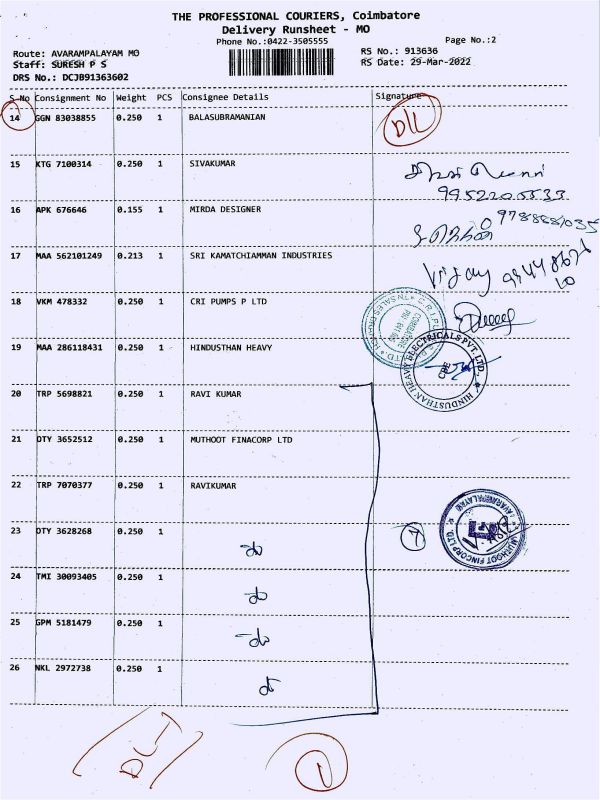 THE PROFESSIONAL COURIERS, Coimbatore
Delivery Runsheet - MO
Phone No.:0422-3505555
Page No.:2
Route: AVARAMPALAYAM MO
RS No.: 913636
Staff: SURESH P S
RS Date: 29-Mar-2022
DRS No.: DCJB91363602
S No Consignment No Weight PCS Consignee Details Signature
14 GGN 83038855 0.250 1 BALASUBRAMANIAN
15 KTG 7100314 0.250 1 SIVAKUMAR
9952205533
16 APK 676646 0.155 1 MIRDA DESIGNER
17 MAA 562101249 0.213 1 SRI KAMATCHIAMMAN INDUSTRIES
Vijay
18 VKM 478332 0.250 1 CRI PUMPS P LTD
19 MAA 286118431 0.250 1 HINDUSTHAN HEAVY
HINDUSTHAN HEAVY ELECTRICALS PVT. LTD.
CBE
20 TRP 5698821 0.250 1 RAVI KUMAR
21 OTY 3652512 0.250 1 MUTHOOT FINACORP LTD
22 TRP 7070377 0.250 1 RAVIKUMAR
23 OTY 3628268 0.250 1 do 7
MUTHOOT FINCORP LTD
AVARAMPALAYAM
24 TMI 30093405 0.250 1 do
25 GPM 5181479 0.250 1 do
26 NKL 2972738 0.250 1 do